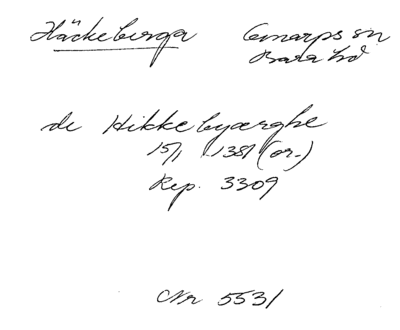 Häckeberga Genarps sn
Bara hd
de Hikkebyærghe
15/1 1381 (or.)
Rep. 3309
Nr 5531